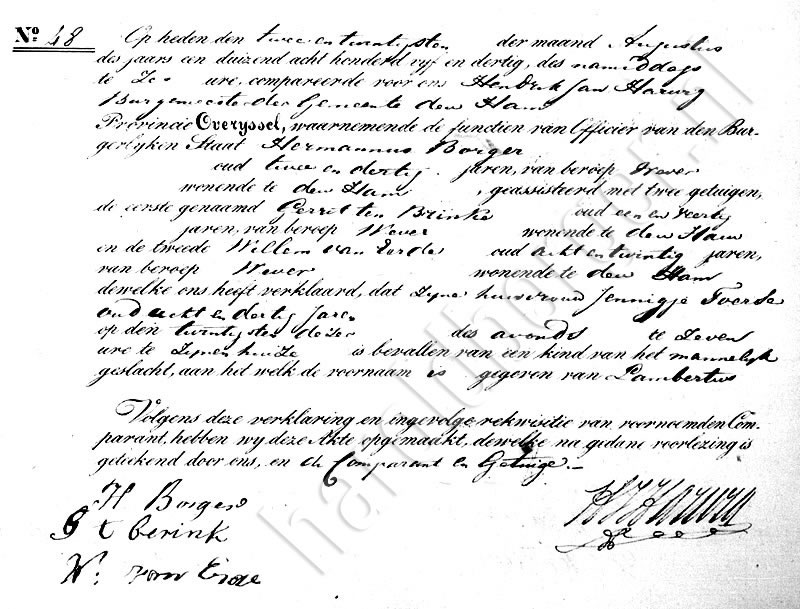 No. 48
Op heden den twee en twintigsten der maand Augustus
des jaars een duizend acht honderd vyf en dertig, des namiddags
te Zes ure, compareerde voor ons Hendrik Jan Harwig
Burgemeester der Gemeente den Ham
Provincie Overyssel, waarnemende de functien van Officier van den Bur-
gerlyken Staat Hermannus Borger
oud twee en dertig jaren, van beroep Wever
wonende te den Ham, geassisteerd met twee getuigen,
de eerste genaamd Gerrit ten Brinke oud een en veertig
jaren, van beroep Wever wonende te den Ham
en de tweede Willem van Eerde oud acht en twintig jaren,
van beroep Wever wonende te den Ham
dewelke ons heeft verklaard, dat Zyne huisvrouw Jennigje
oud acht en dertig jaren
op den twintigsten dezer des avonds te Zeven
ure te Zynen huize is bevallen van een kind van het mannelyk
geslacht, aan het welk de voornaam is gegeven van Lambertus
Volgens deze verklaring en ingevolge rekwisitie van voornoemden Com-
parant, hebben wy deze Akte opgemaakt, dewelke na gedane voorlezing is
geteekend door ons, en de Comparant en Getuige.-
H Borger
G t berink
W: van Erde